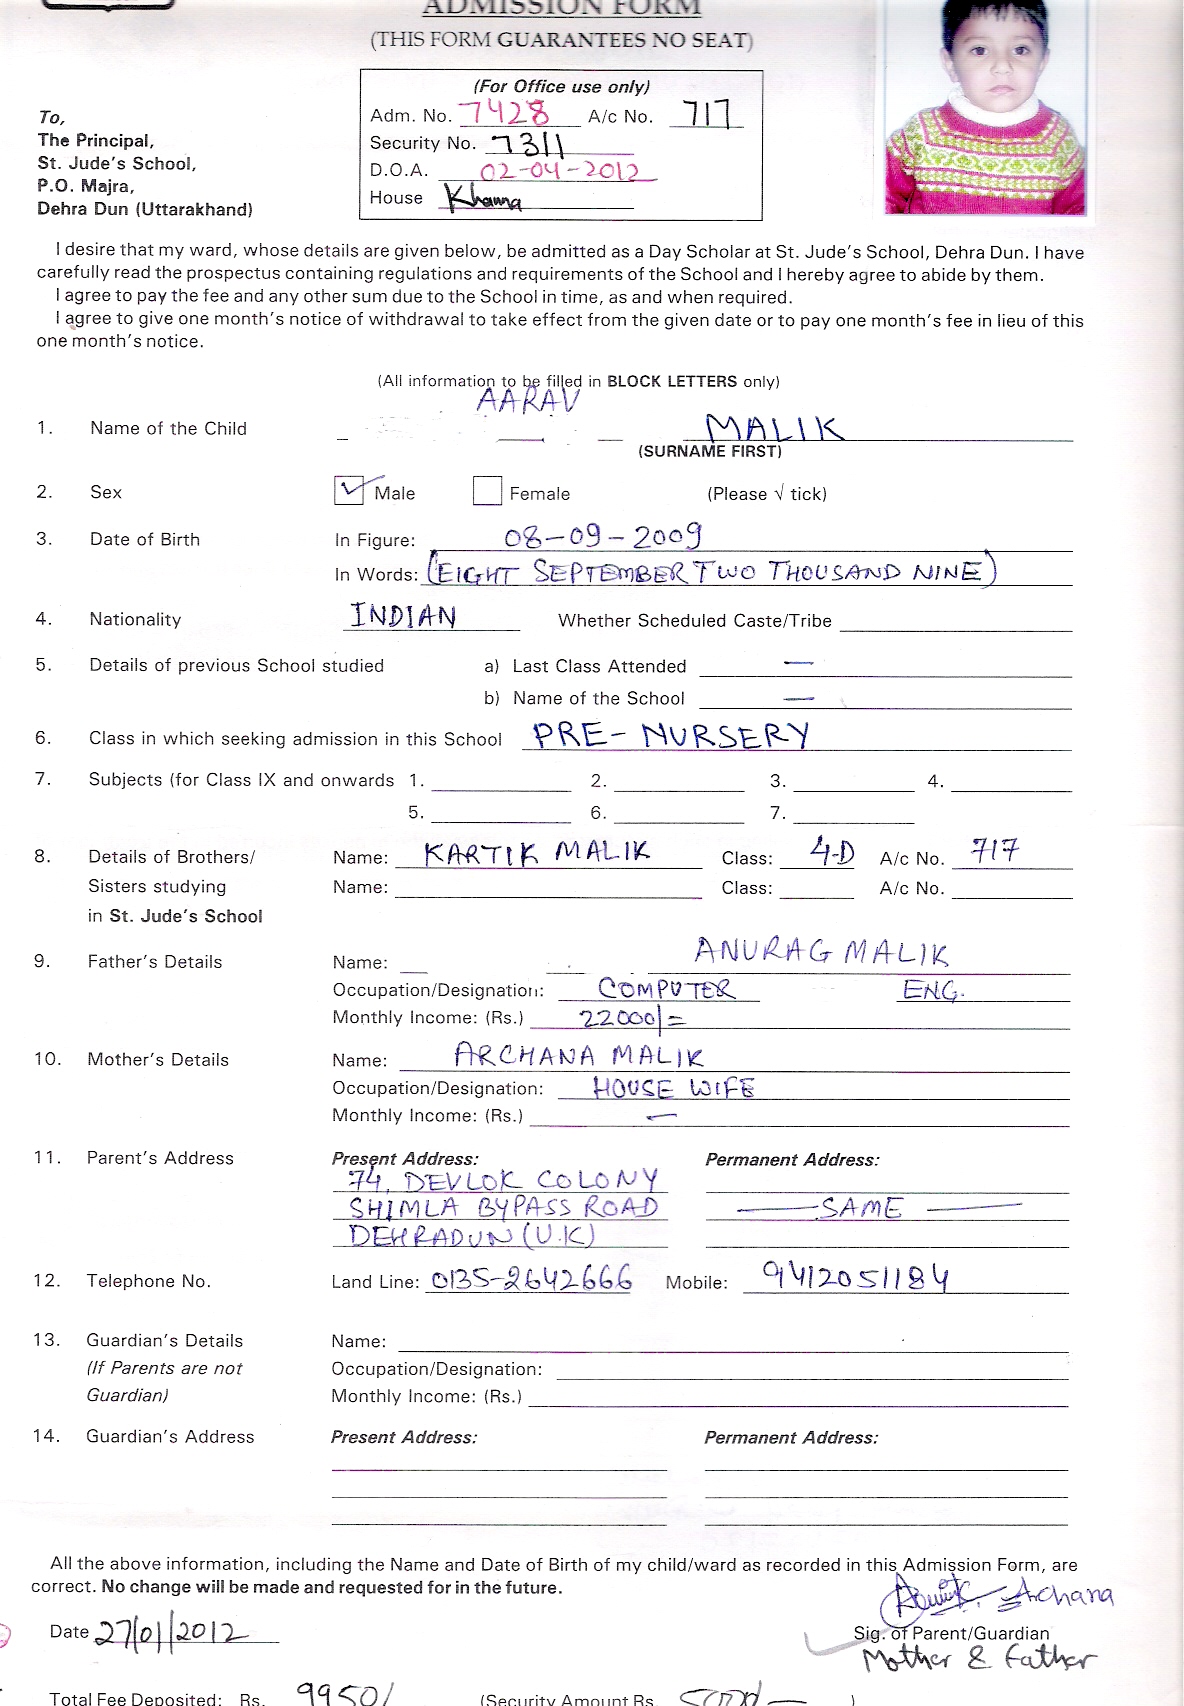 ADMISSION FORM
(THIS FORM GUARANTEES NO SEAT)
(For Office use only)
Adm. No. 7428 A/c No. 717
Security No. 7311
D.O.A. 02-04-2012
House Khanna
To,
The Principal,
St. Jude's School,
P.O. Majra,
Dehra Dun (Uttarakhand)
I desire that my ward, whose details are given below, be admitted as a Day Scholar at St. Jude's School, Dehra Dun. I have
carefully read the prospectus containing regulations and requirements of the School and I hereby agree to abide by them.
I agree to pay the fee and any other sum due to the School in time, as and when required.
I agree to give one month's notice of withdrawal to take effect from the given date or to pay one month's fee in lieu of this
one month's notice.
(All information to be filled in BLOCK LETTERS only)
1. Name of the Child AARAV MALIK
(SURNAME FIRST)
2. Sex Male Female (Please √ tick)
3. Date of Birth In Figure: 08-09-2009
In Words: (EIGHT SEPTEMBER TWO THOUSAND NINE)
4. Nationality INDIAN Whether Scheduled Caste/Tribe
5. Details of previous School studied a) Last Class Attended —
b) Name of the School —
6. Class in which seeking admission in this School PRE-NURSERY
7. Subjects (for Class IX and onwards 1. 2. 3. 4.
5. 6. 7.
8. Details of Brothers/ Name: KARTIK MALIK Class: 4-D A/c No. 717
Sisters studying Name: Class: A/c No.
in St. Jude's School
9. Father's Details Name: ANURAG MALIK
Occupation/Designation: COMPUTER ENG.
Monthly Income: (Rs.) 22000/=
10. Mother's Details Name: ARCHANA MALIK
Occupation/Designation: HOUSE WIFE
Monthly Income: (Rs.) —
11. Parent's Address Present Address: Permanent Address:
74, DEVLOK COLONY
SHIMLA BYPASS ROAD — SAME —
DEHRADUN (U.K)
12. Telephone No. Land Line: 0135-2642666 Mobile: 9412051184
13. Guardian's Details Name:
(If Parents are not Occupation/Designation:
Guardian) Monthly Income: (Rs.)
14. Guardian's Address Present Address: Permanent Address:
All the above information, including the Name and Date of Birth of my child/ward as recorded in this Admission Form, are
correct. No change will be made and requested for in the future.
Archana
Date 27/01/2012 Sig. of Parent/Guardian
Mother & Father
Total Fee Deposited: Rs. 9950/ (Security Amount Rs. )